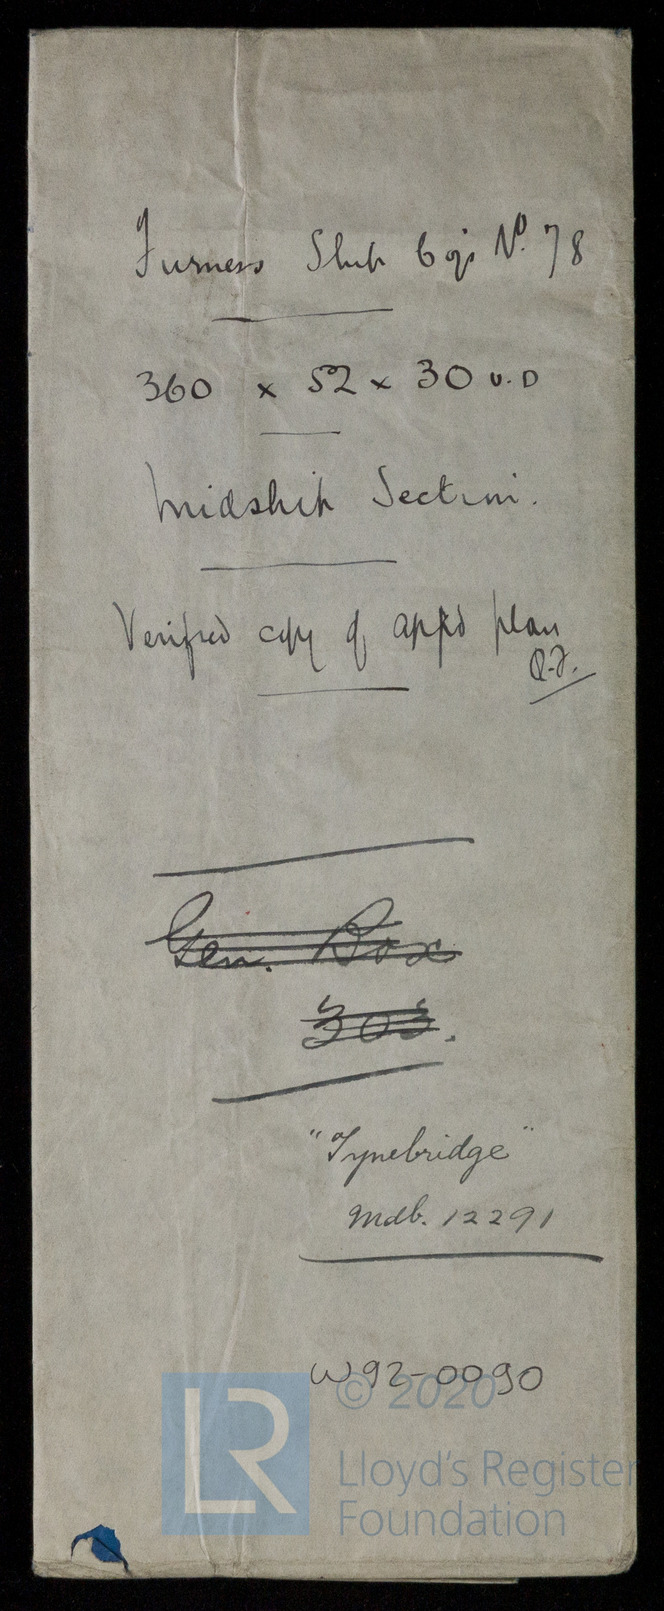 Furness Ship Co's No. 78
360 x 52 x 30 U.D
Midship Section.
Verified copy of appd plan
Gen. Box
303.
"Tynebridge"
Mdb. 12291
W92-0090
© 2020
LR
Lloyd's Register
Foundation